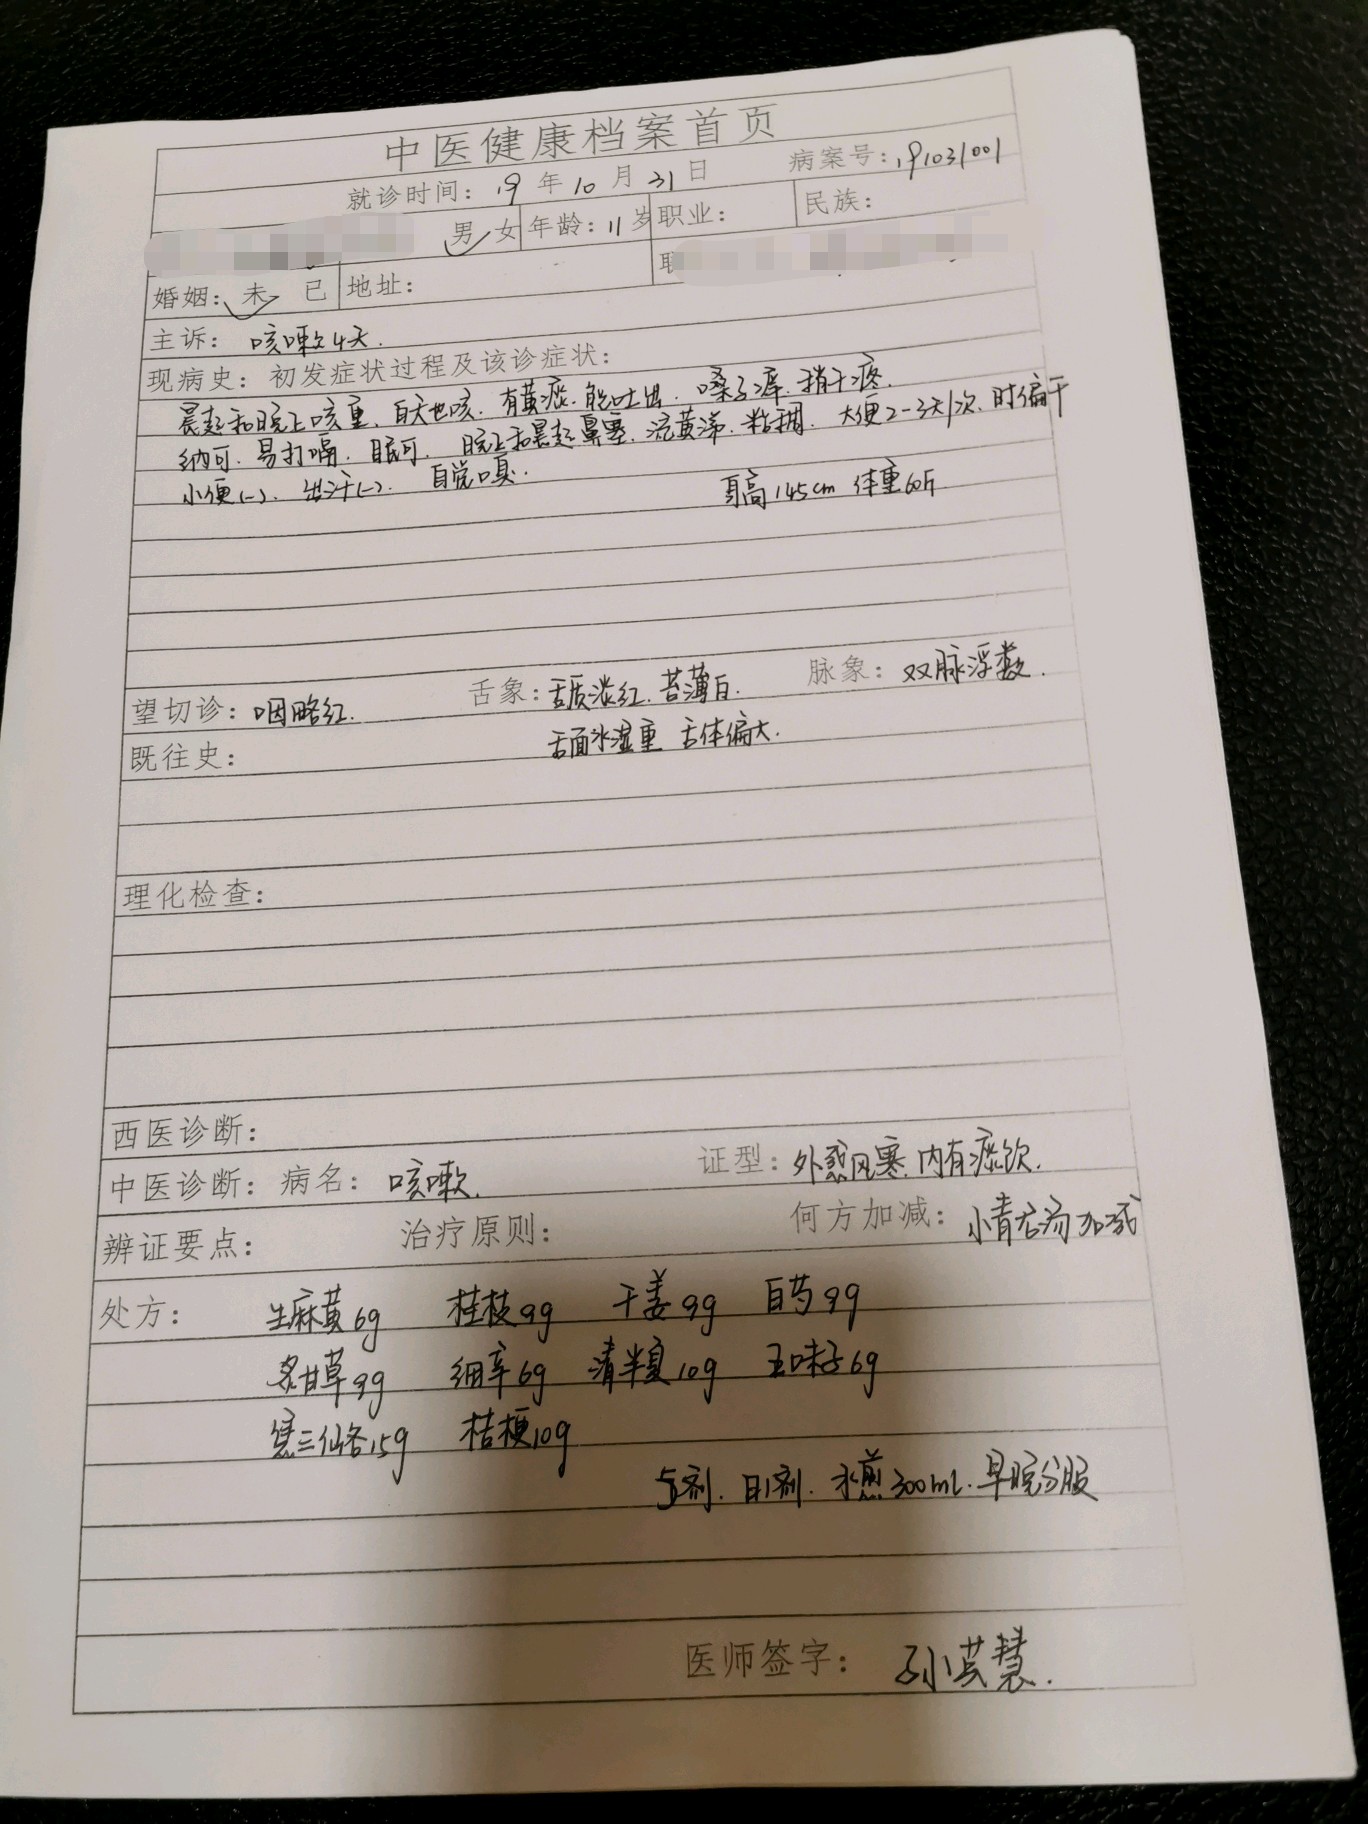 中医健康档案首页
就诊时间：19年10月31日 病案号：191031001
男 女 年龄：11岁 职业： 民族：
婚姻：未 已 地址：
主诉：咳嗽4天.
现病史：初发症状过程及该诊症状：
晨起和晚上咳重，白天也咳，有黄痰，能吐出，嗓子痒，稍干疼.
纳可，易打嗝，眠可，晚上和晨起鼻塞，流黄涕，粘稠，大便2-3天1次，时偏干
小便(-)，出汗(-)，自觉嗅.
身高145cm 体重60斤
望切诊：咽略红. 舌象：舌质淡红，苔薄白. 脉象：双脉浮数.
舌面水湿重 舌体偏大.
既往史：
理化检查：
西医诊断：
中医诊断：病名：咳嗽. 证型：外感风寒，内有痰饮.
辨证要点： 治疗原则： 何方加减：小青龙汤加减
处方： 生麻黄6g 桂枝9g 干姜9g 白芍9g
炙甘草9g 细辛6g 清半夏10g 五味子6g
焦三仙各15g 桔梗10g
5剂．日1剂．水煎300ml．早晚分服
医师签字：孙芸慧.